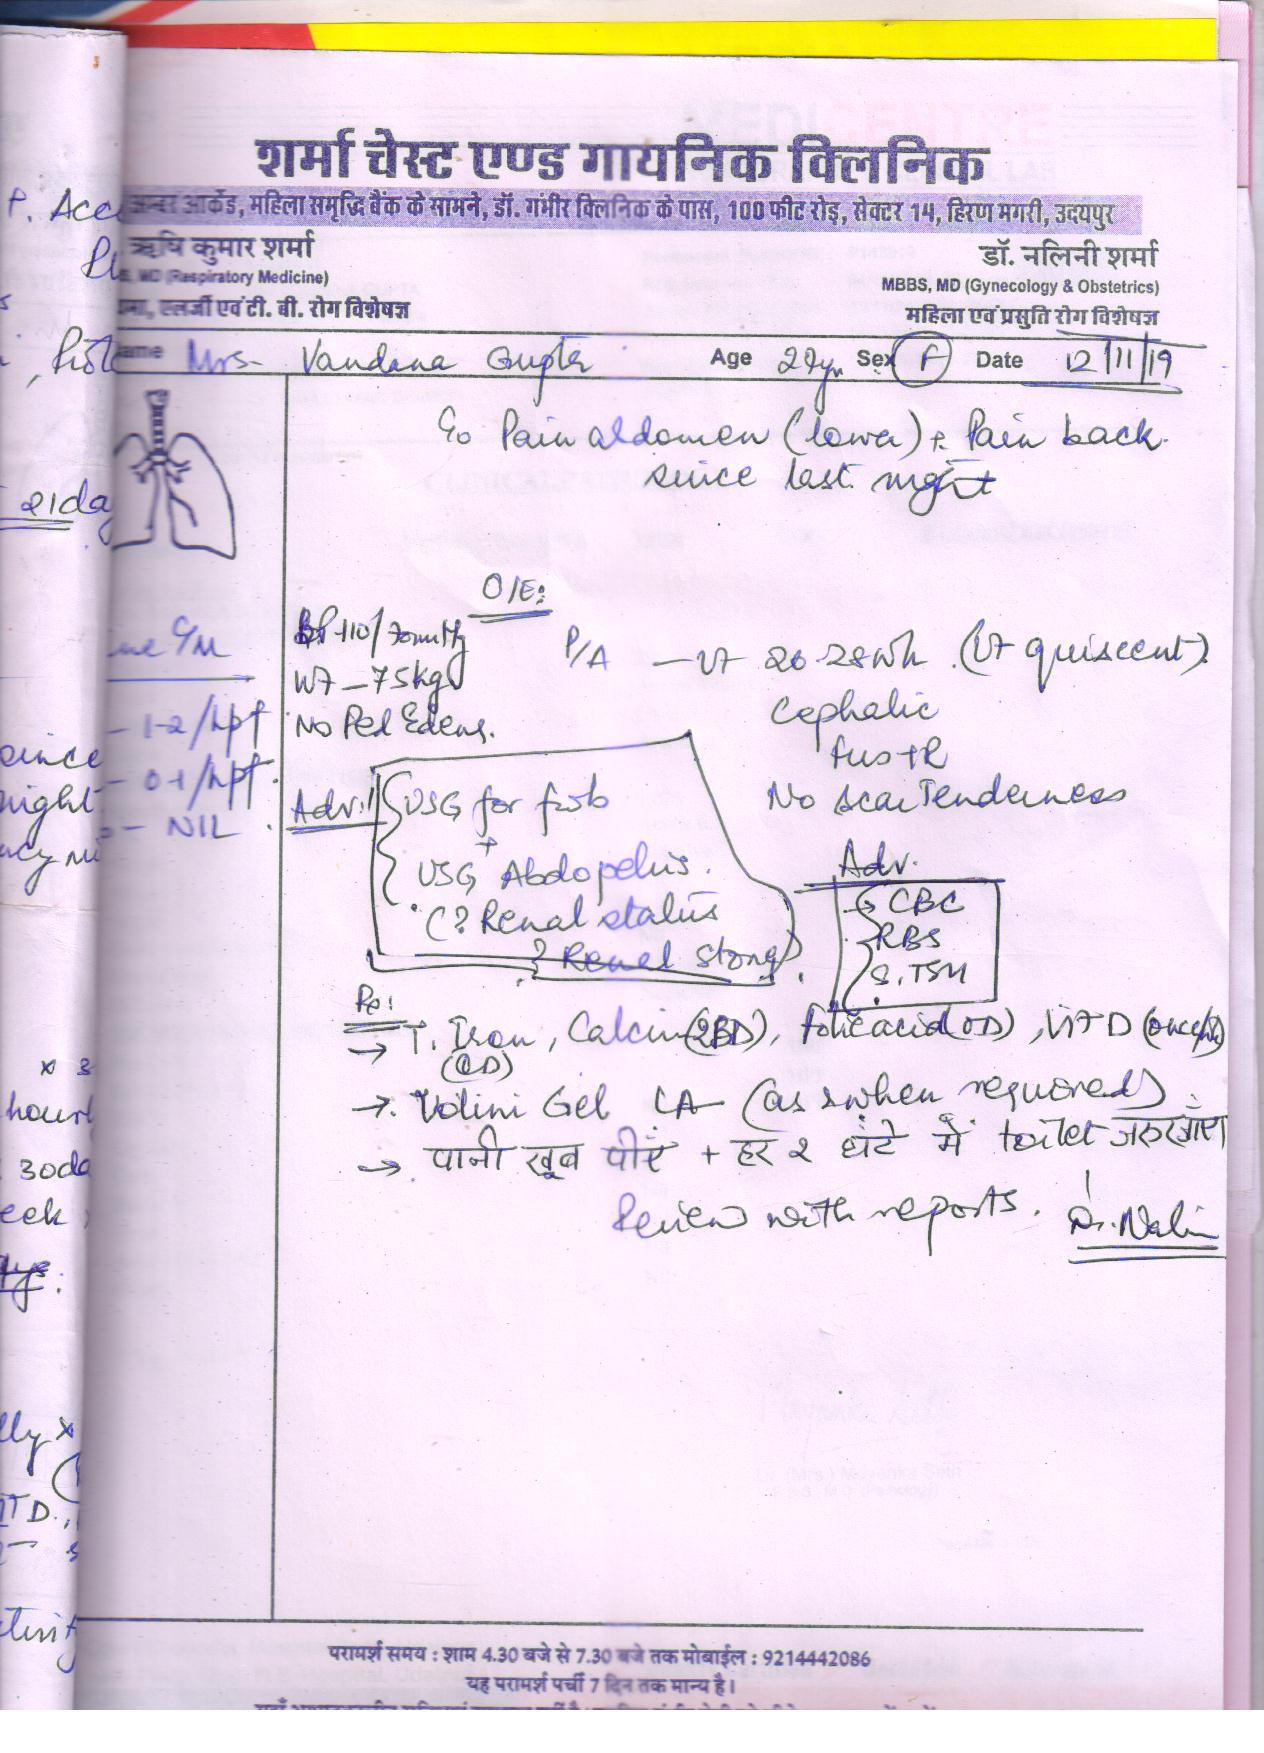 शर्मा चेस्ट एण्ड गायनिक क्लिनिक
अम्बर आर्केड, महिला समृद्धि बैंक के सामने, डॉ. गंभीर क्लिनिक के पास, 100 फीट रोड़, सेक्टर 14, हिरण मगरी, उदयपुर
P. Acc
ऋषि कुमार शर्मा
डॉ. नलिनी शर्मा
S, MD (Respiratory Medicine)
MBBS, MD (Gynecology & Obstetrics)
एलर्जी एवं टी. बी. रोग विशेषज्ञ
महिला एवं प्रसुति रोग विशेषज्ञ
ame Mrs. Vandana Gupta Age 29yr Sex F Date 12/11/19
C/o Pain abdomen (lower) + Pain back
since last night
21da
O/E:
BP 110/70mmHg
P/A - Ut 26-28wk (Ut quiscent)
ine C/M
Wt - 75kg
Cephalic
- 1-2/hpf
No Ped Edema.
FHS +R
since
- 0-1/hpf.
No scar Tenderness
night
- NIL
Adv.
USG for fwb
+
USG Abdopelvis.
(? Renal status
? Renal stone)
Adv.
CBC
RBS
S. TSH
Rx:
→ T. Iron, Calcium (2BD), folic acid (OD), Vit D (once/wk)
(OD)
→ Volini Gel LA (as & when required)
→ पानी खूब पीएं + हर २ घंटे में toilet जरुर जाएं
Review with reports.
Dr. Nalin
x 3
hourl
30da
eek
lly x
परामर्श समय : शाम 4.30 बजे से 7.30 बजे तक मोबाईल : 9214442086
यह परामर्श पर्ची 7 दिन तक मान्य है।